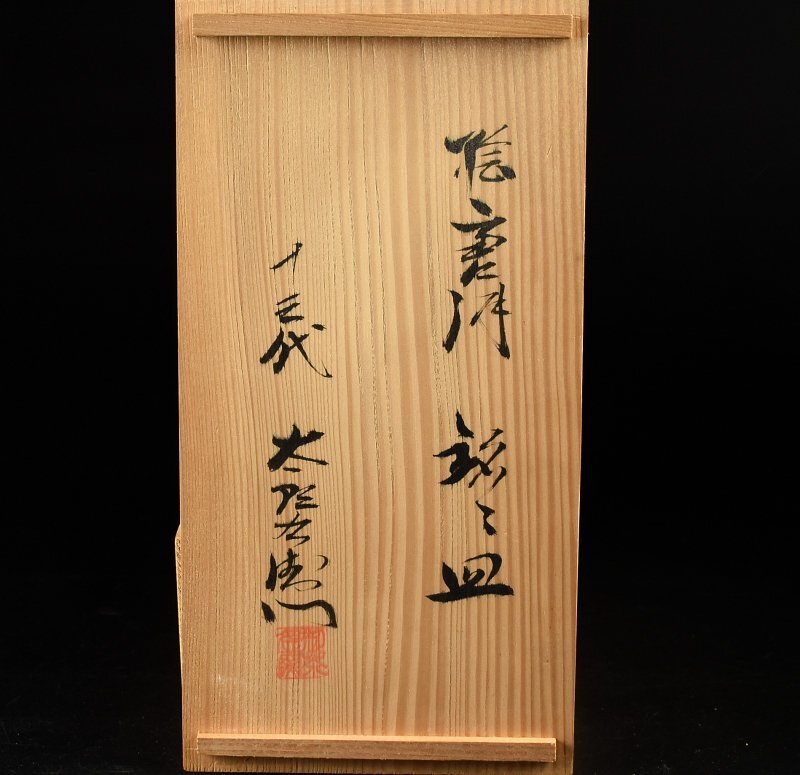 絵唐津 銘々皿
十三代 太郎右衛門